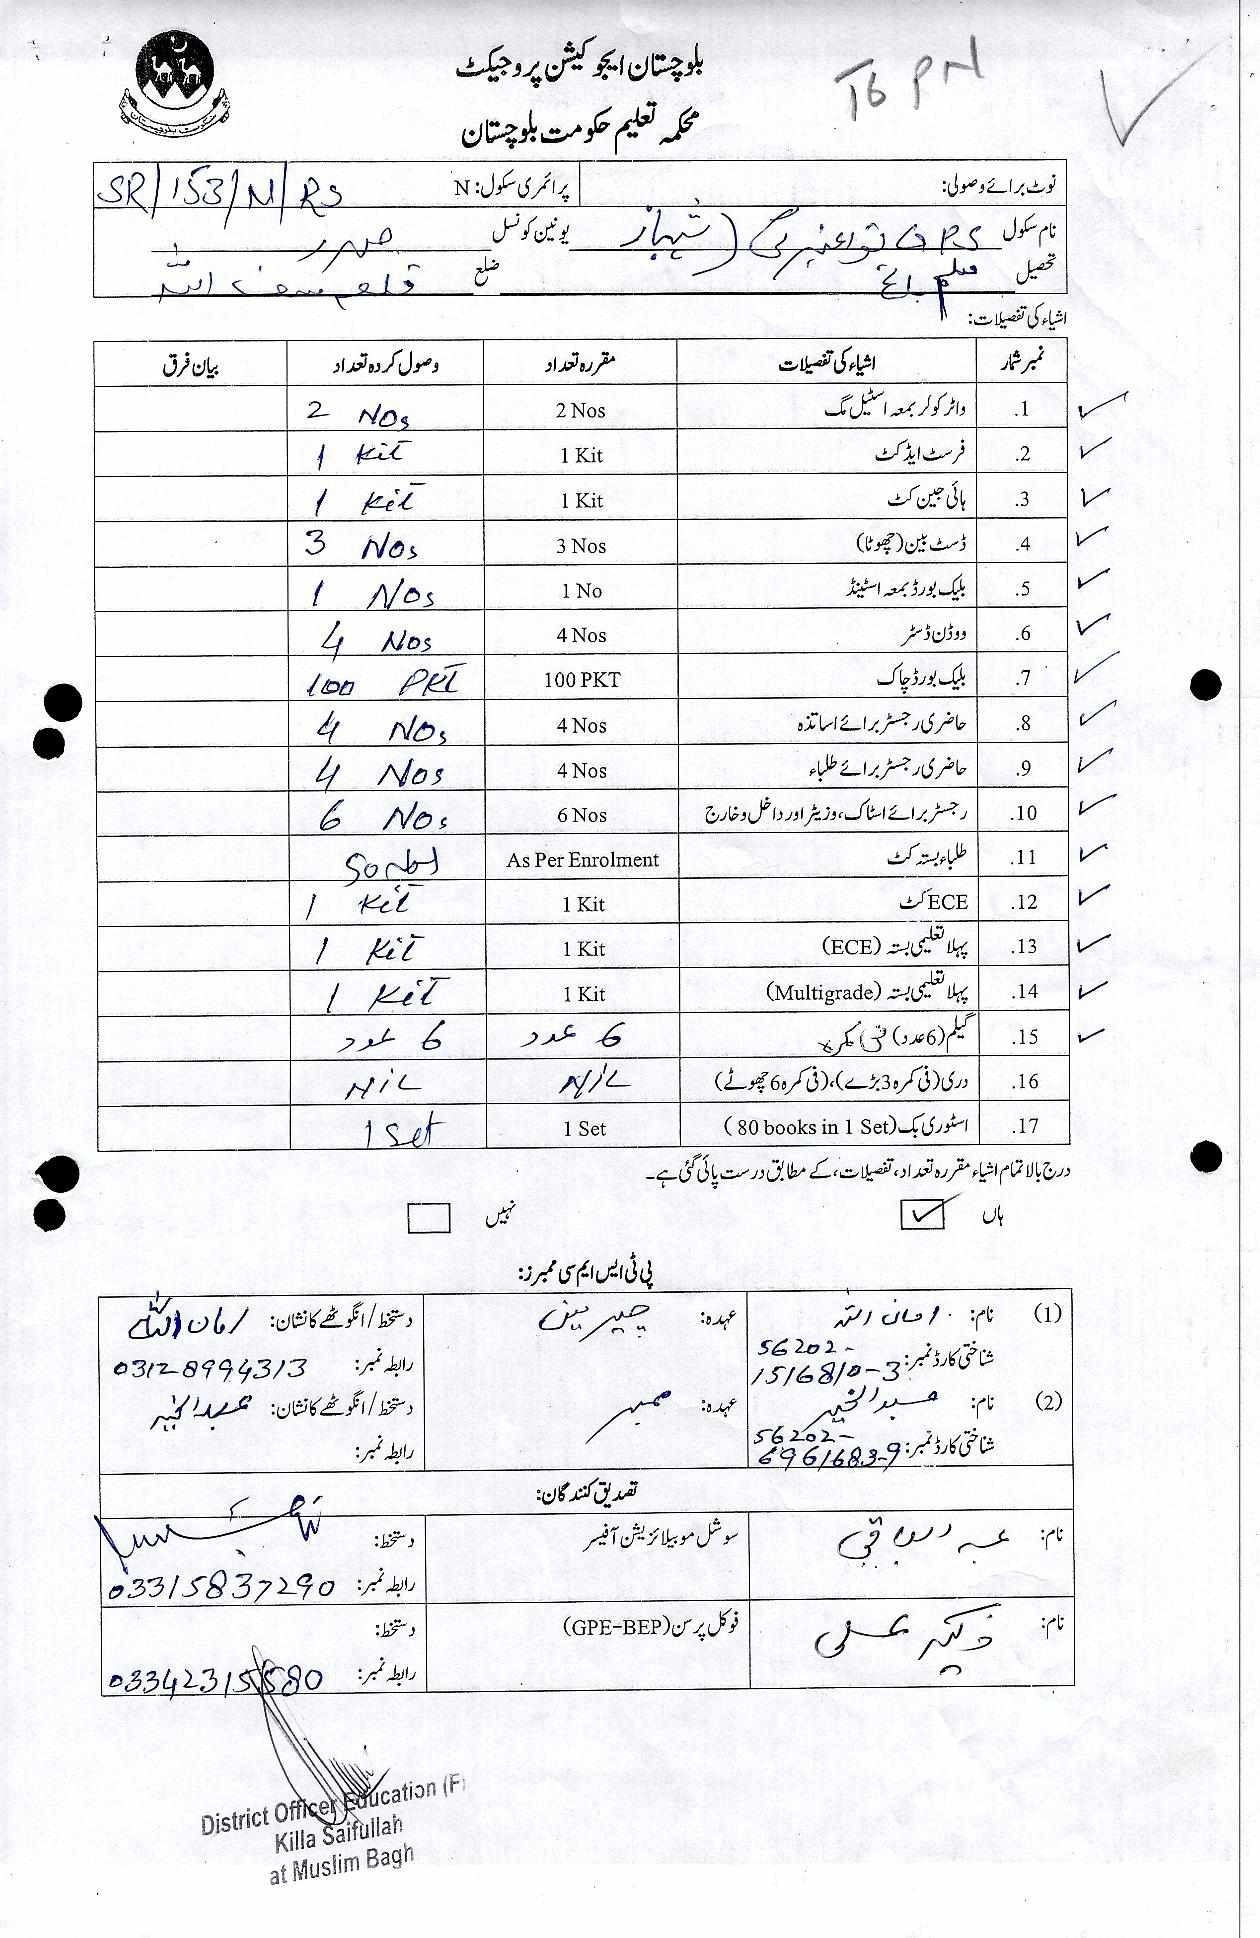 بلوچستان ایجوکیشن پروجیکٹ
T6 PN
محکمہ تعلیم حکومت بلوچستان
نوٹ برائے وصولی: پرائمری سکول: N SR/153/N/RS
نام سکول GPS شہباز یونین کونسل
تحصیل مسلم باغ ضلع قلعہ سیف اللہ
اشیاء کی تفصیلات:
نمبر شمار اشیاء کی تفصیلات مقررہ تعداد وصول کردہ تعداد بیان فرق
1. واٹر کولر بمعہ اسٹیل مگ 2 Nos 2 Nos
2. فرسٹ ایڈ کٹ 1 Kit 1 Kit
3. ہائی جین کٹ 1 Kit 1 Kit
4. ڈسٹ بین (چھوٹا) 3 Nos 3 Nos
5. بلیک بورڈ بمعہ اسٹینڈ 1 No 1 Nos
6. ووڈن ڈسٹر 4 Nos 4 Nos
7. بلیک بورڈ چاک 100 PKT 100 PKT
8. حاضری رجسٹر برائے اساتذہ 4 Nos 4 Nos
9. حاضری رجسٹر برائے طلباء 4 Nos 4 Nos
10. رجسٹر برائے اسٹاک، وزیٹر اور داخل و خارج 6 Nos 6 Nos
11. طلباء بستہ کٹ As Per Enrolment 50 Nos
12. ECE کٹ 1 Kit 1 Kit
13. پہلا تعلیمی بستہ (ECE) 1 Kit 1 Kit
14. پہلا تعلیمی بستہ (Multigrade) 1 Kit 1 Kit
15. گیلم (6 عدد) فی کمرہ 6 عدد 6 عدد
16. دری (فی کمرہ 3 بڑے)، (فی کمرہ 6 چھوٹے) NIL NIL
17. اسٹوری بک (80 books in 1 Set) 1 Set 1 Set
درج بالا تمام اشیاء مقررہ تعداد، تفصیلات، کے مطابق درست پائی گئی ہے۔
ہاں نہیں
پی ٹی ایس ایم سی ممبرز:
(1) نام: امان اللہ عہدہ: چیرمین دستخط/انگوٹھے کا نشان: امان اللہ
شناختی کارڈ نمبر: 56202-1516810-3 رابطہ نمبر: 03128994313
(2) نام: عبدالخیر عہدہ: ممبر دستخط/انگوٹھے کا نشان: عبدالخیر
شناختی کارڈ نمبر: 56202-6961683-9 رابطہ نمبر:
تصدیق کنندگان:
نام: عبدالباقی سوشل موبیلائزیشن آفیسر دستخط:
رابطہ نمبر: 03315837290
نام: علی فوکل پرسن (GPE-BEP) دستخط:
رابطہ نمبر: 03342315580
District Officer Education (F)
Killa Saifullah
at Muslim Bagh